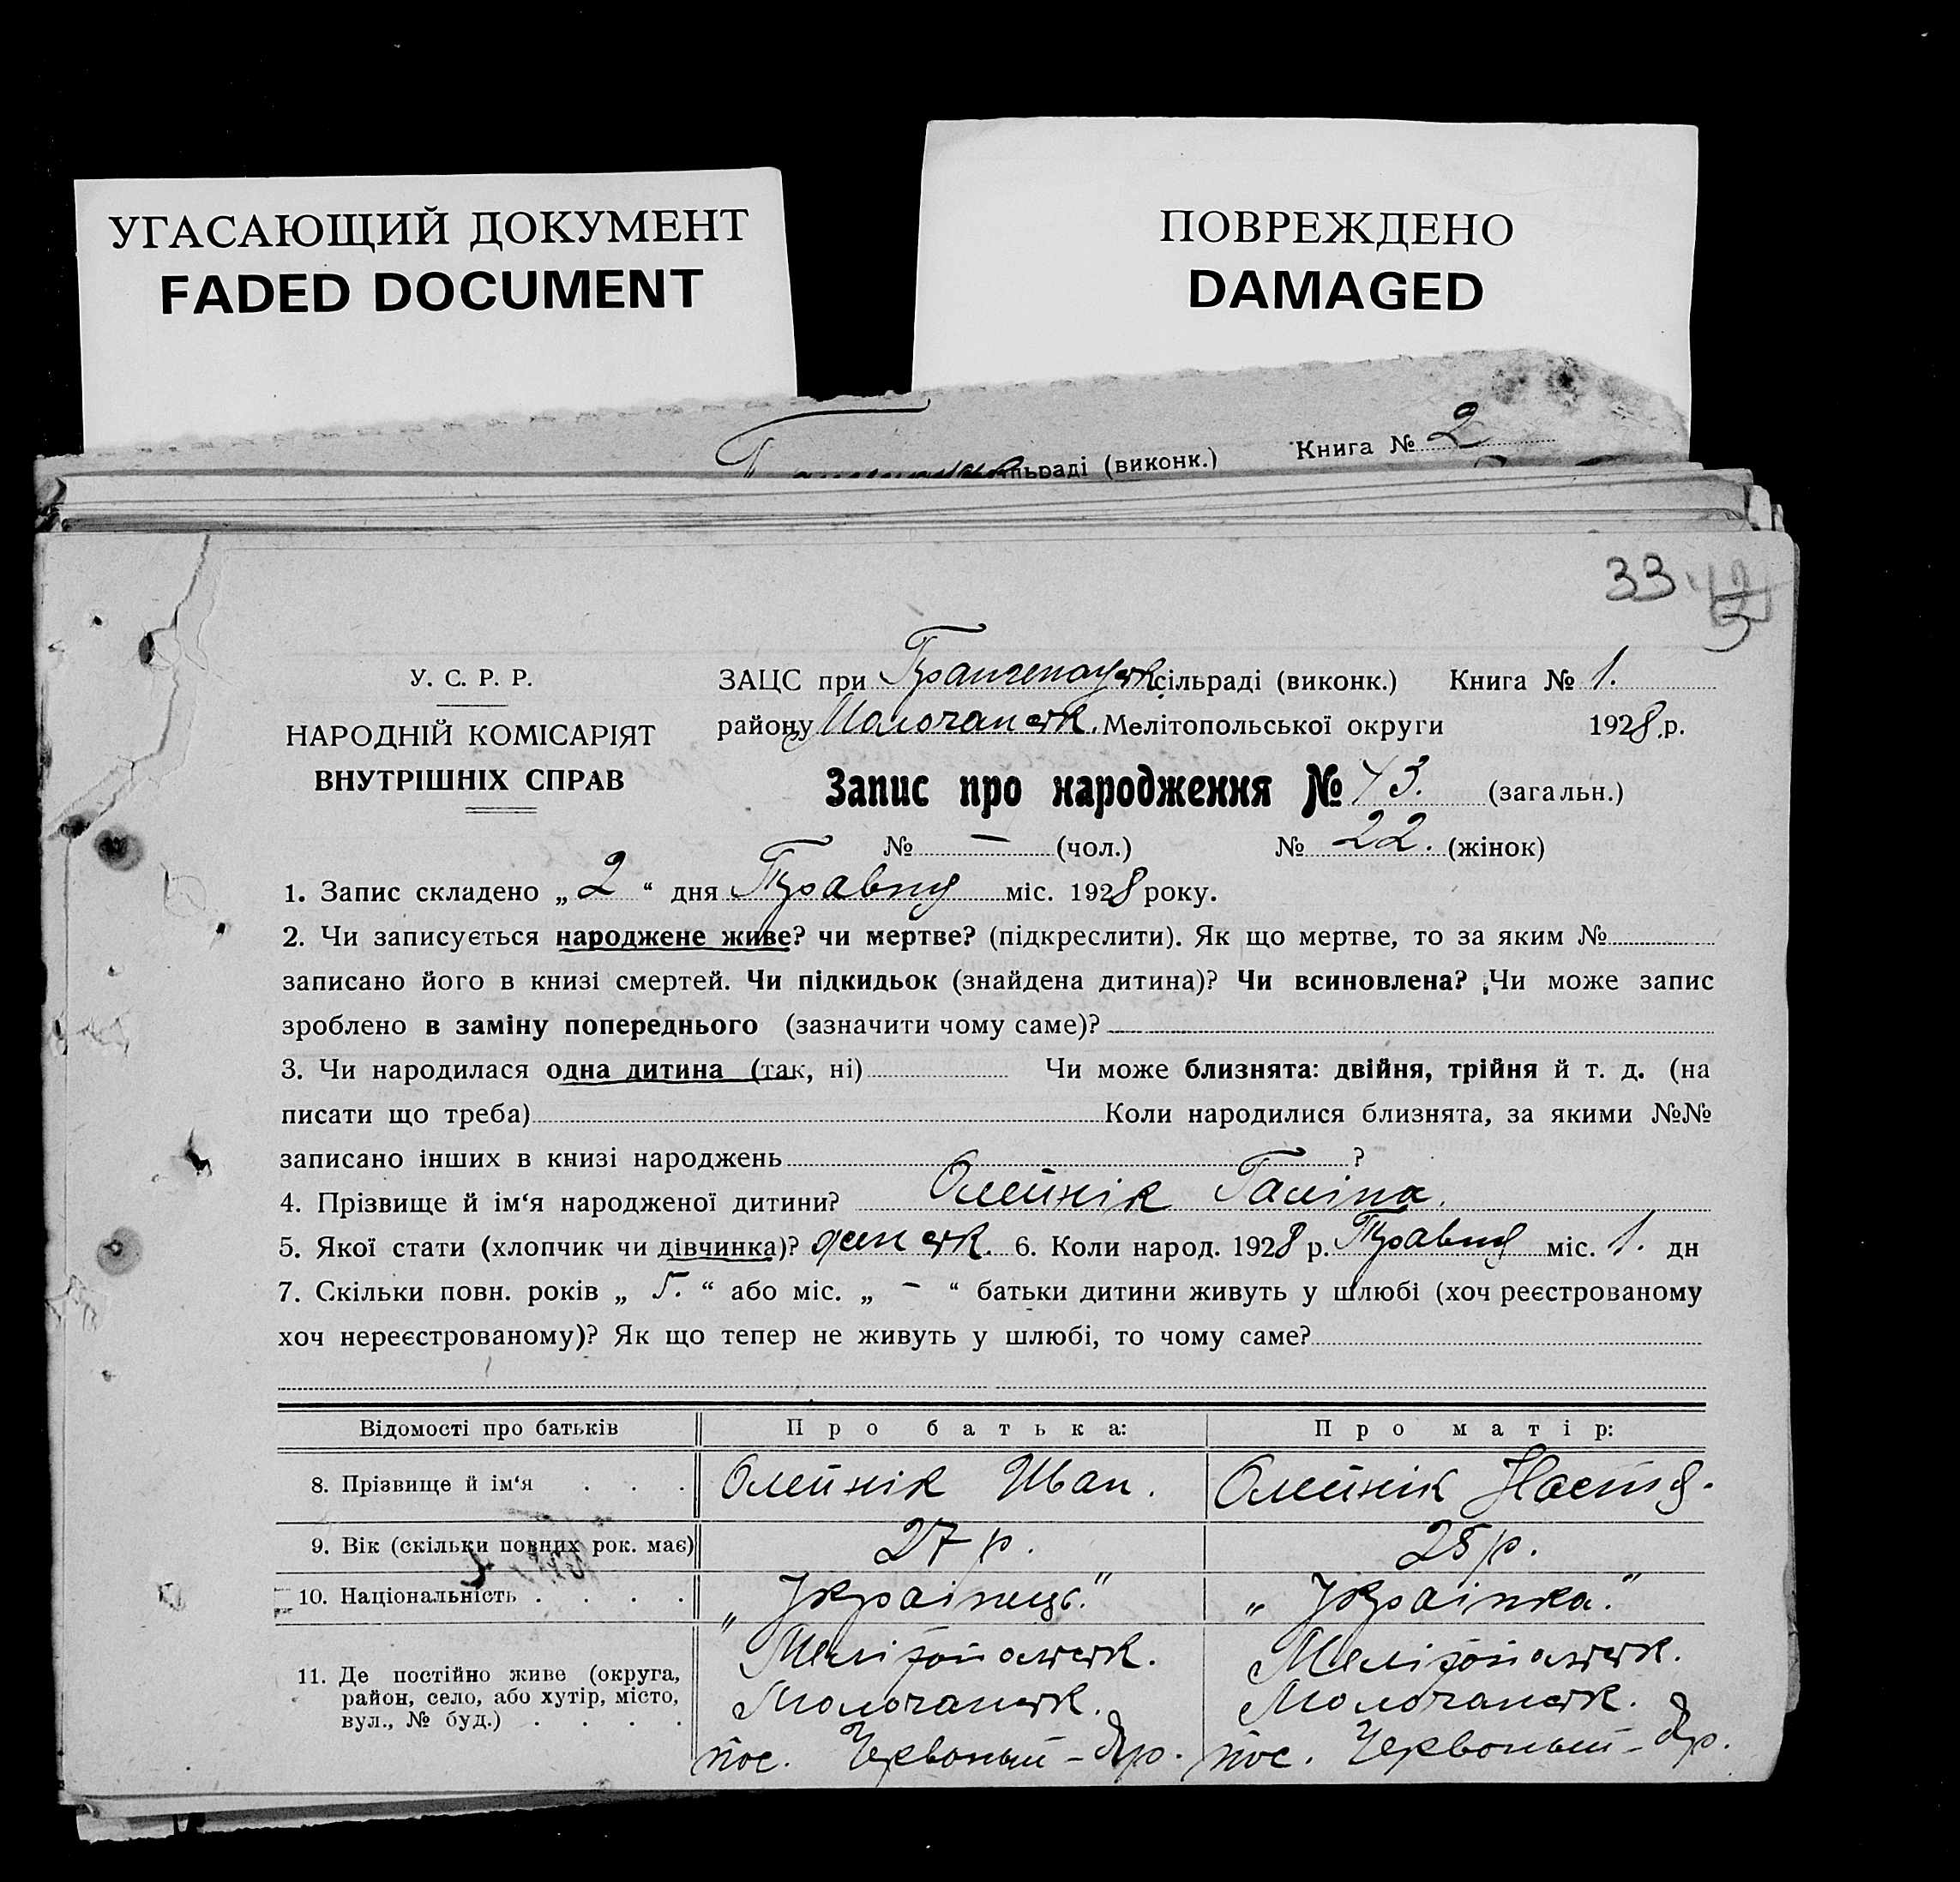 УГАСАЮЩИЙ ДОКУМЕНТ
FADED DOCUMENT
ПОВРЕЖДЕНО
DAMAGED
льраді (виконк.) Книга № 2
33
У. С. Р. Р.
НАРОДНІЙ КОМІСАРІЯТ
ВНУТРІШНІХ СПРАВ
ЗАЦС при сільраді (виконк.) Книга № 1.
району Молочанськ. Мелітопольської округи 1928 р.
Запис про народження № 43. (загальн.)
№ — (чол.) № 22. (жінок)
1. Запис складено „ 2 “ дня Травня міс. 1928 року.
2. Чи записується народжене живе? чи мертве? (підкреслити). Як що мертве, то за яким №
записано його в книзі смертей. Чи підкидьок (знайдена дитина)? Чи всиновлена? Чи може запис
зроблено в заміну попереднього (зазначити чому саме)?
3. Чи народилася одна дитина (так, ні) Чи може близнята: двійня, трійня й т. д. (на
писати що треба) Коли народилися близнята, за якими №№
записано інших в книзі народжень ?
4. Прізвище й ім‘я народженої дитини? Олейнік Галіна.
5. Якої стати (хлопчик чи дівчинка)? женськ. 6. Коли народ. 1928 р. Травня міс. 1. дн
7. Скільки повн. років „ 5. “ або міс. „ – “ батьки дитини живуть у шлюбі (хоч реєстрованому
хоч нереєстрованому)? Як що тепер не живуть у шлюбі, то чому саме?
Відомості про батьків Про батька: Про матір:
8. Прізвище й ім‘я . . . Олейнік Иван. Олейнік Настя.
9. Вік (скільки повних рок. має) 27 р. 25 р.
10. Національність . . . . „Українець.“ „Українка.“
11. Де постійно живе (округа, Мелітопольськ. Мелітопольськ.
район, село, або хутір, місто, Молочанськ. Молочанськ.
вул., № буд.) . . . . пос. Червоный-Яр. пос. Червоный-Яр.